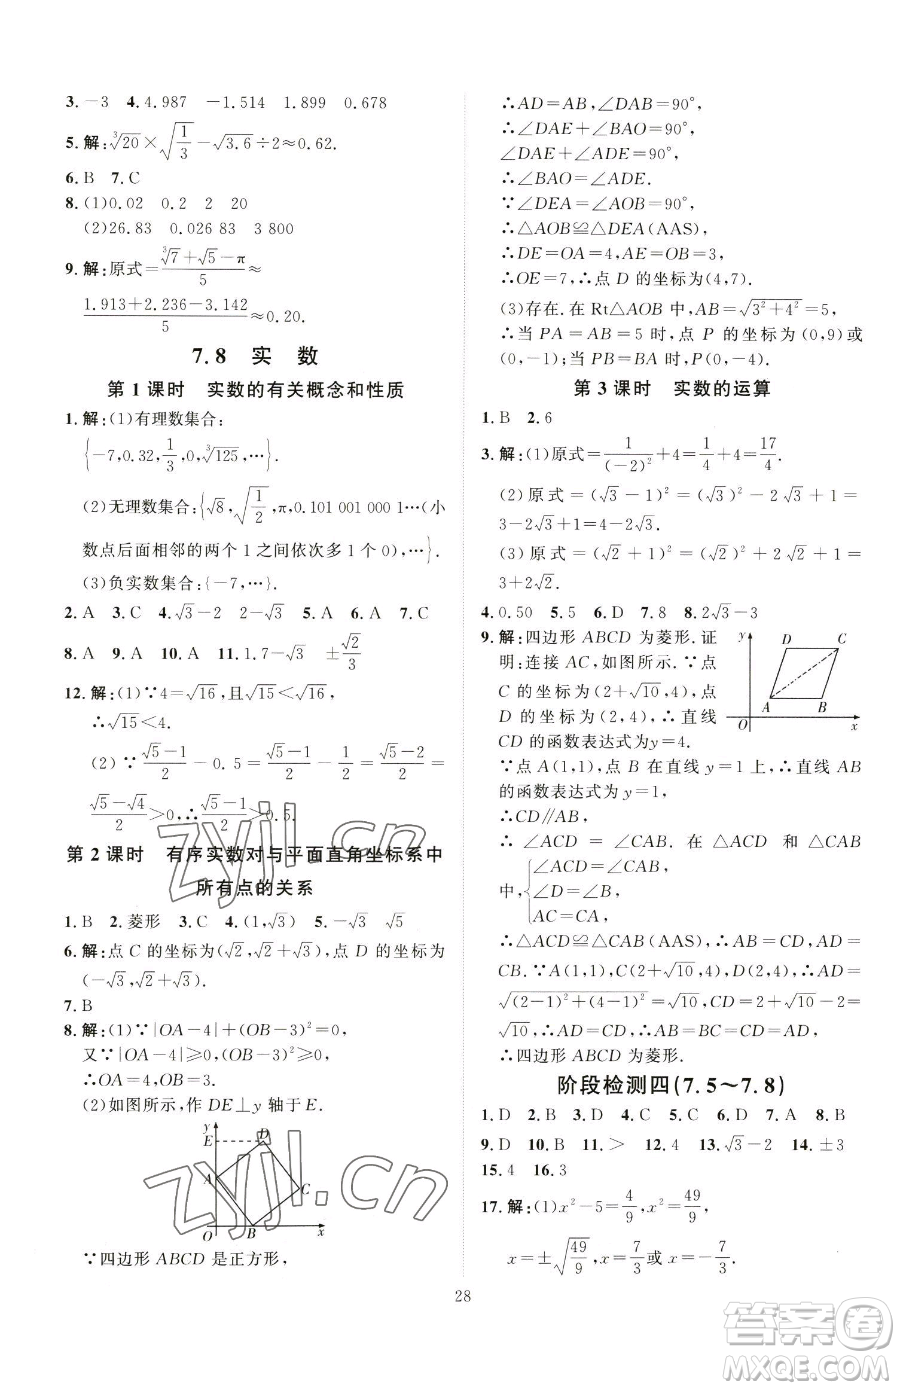 3. －3　4. 4.987　－1.514　1.899　0.678
5. 解:∛20×√(1/3)－√3.6÷2≈0.62.
6. B　7. C
8. (1)0.02　0.2　2　20
(2)26.83　0.026 83　3
9. 解:原式＝(∛7＋√5－π)/5≈
(1.913＋2.236－3.142)/5≈0.20.
7.8　实　数
第 1 课时　实数的有关概念和性质
1. 解:(1)有理数集合:
{－7,0.32,1/3,0,∛125,…}.
(2)无理数集合:{√8,√(1/2),π,0.101 001 000 1…(小
数点后面相邻的两个 1 之间依次多 1 个 0),…}.
(3)负实数集合:{－7,…}.
2. A　3. C　4. √3－2　2－√3　5. A　6. A　7. C
8. A　9. A　10. A　11. 1.7－√3　±√2/3
12. 解:(1)∵4＝√16,且√15＜√16,
∴√15＜4.
(2)∵(√5－1)/2－0.5＝(√5－1)/2－1/2＝(√5－2)/2＝
(√5－√4)/2＞0,∴(√5－1)/2＞0.5.
第 2 课时　有序实数对与平面直角坐标系中
所有点的关系
1. B　2. 菱形　3. C　4. (1,√3)　5. －√3　√5
6. 解:点 C 的坐标为(√2,√2＋√3),点 D 的坐标为
(－√3,√2＋√3).
7. B
8. 解:(1)∵|OA－4|＋(OB－3)²＝0,
又∵|OA－4|≥0,(OB－3)²≥0,
∴OA＝4,OB＝3.
(2)如图所示,作 DE⊥y 轴于 E.
y
E
D
A
C
O
B
x
∵四边形 ABCD 是正方形,
∴AD＝AB,∠DAB＝90°,
∴∠DAE＋∠BAO＝90°,
∠DAE＋∠ADE＝90°,
∴∠BAO＝∠ADE.
∵∠DEA＝∠AOB＝90°,
∴△AOB≌△DEA(AAS),
∴DE＝OA＝4,AE＝OB＝3,
∴OE＝7,∴点 D 的坐标为(4,7).
(3)存在. 在 Rt△AOB 中,AB＝√(3²＋4²)＝5,
∴当 PA＝AB＝5 时,点 P 的坐标为(0,9)或
(0,－1). 当 PB＝BA 时,点 P 的坐标为(0,－4).
第 3 课时　实数的运算
1. B　2. 6
3. 解:(1)原式＝1/(－2)²＋4＝1/4＋4＝17/4.
(2)原式＝(√3－1)²＝(√3)²－2√3＋1＝
3－2√3＋1＝4－2√3.
(3)原式＝(√2＋1)²＝(√2)²＋2√2＋1＝
3＋2√2.
4. 0.50　5. 5　6. D　7. 8　8. 2√3－3
9. 解:四边形 ABCD 为菱形. 证
明:连接 AC,如图所示. ∵点
C 的坐标为(2＋√10,4),点
D 的坐标为(2,4),∴直线
CD 的函数表达式为y＝4.
y
D
C
A
B
O
x
∵点 A(1,1),点 B 在直线 y＝1 上,∴直线 AB
的函数表达式为y＝1,
∴CD∥AB,
∴∠ACD＝∠CAB. 在△ACD 和△CAB
中,{∠ACD＝∠CAB,
∠D＝∠B,
AC＝CA,
∴△ACD≌△CAB(AAS),∴AB＝CD,AD＝
CB. ∵点 A(1,1),C(2＋√10,4),D(2,4),∴AD＝
√((2－1)²＋(4－1)²)＝√10,CD＝2＋√10－2＝
√10,∴AD＝CD,∴AB＝BC＝CD＝AD,
∴四边形 ABCD 为菱形.
阶段检测四(7.5～7.8)
1. D　2. B　3. D　4. A　5. C　6. A　7. D　8. B
9. D　10. B　11. ＞　12. 4　13. √3－2　14. ±3
15. 4　16. 3
17. 解:(1)x²－5＝4/9,x²＝49/9,
x＝±√(49/9),x＝7/3或x＝－7/3.
28
zyjl.cn
zyjl.cn
答案圈
MXQE.COM